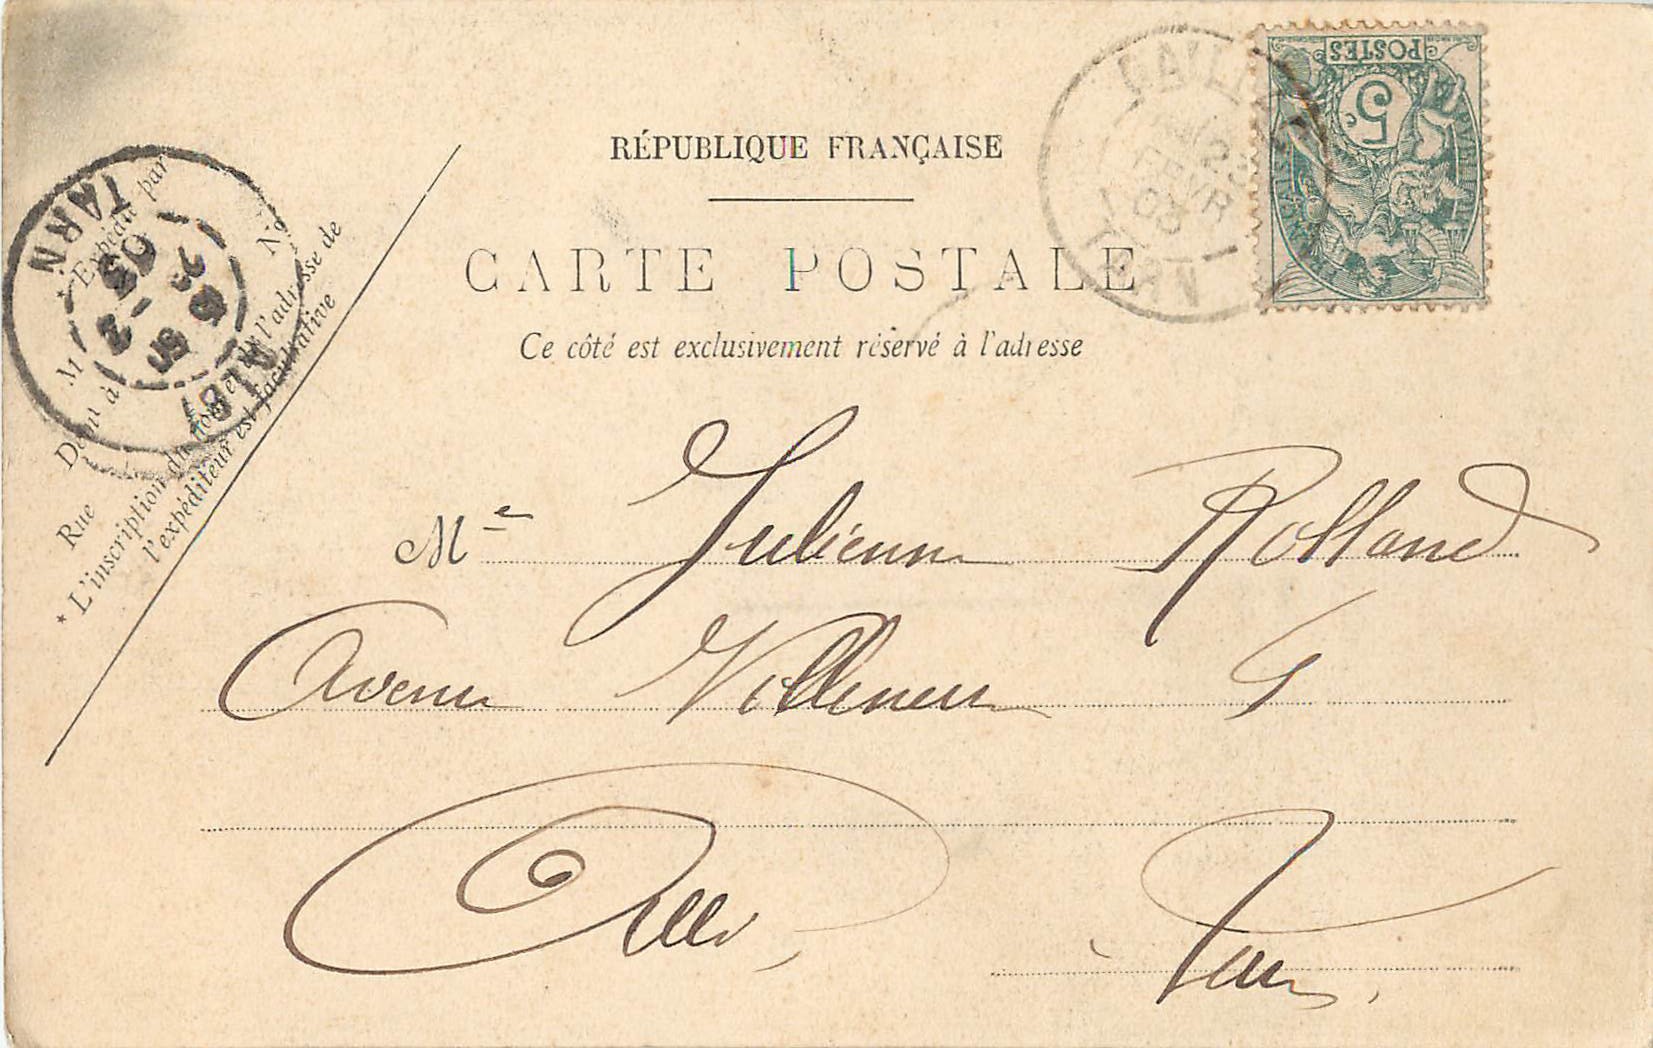 RÉPUBLIQUE FRANÇAISE
CARTE POSTALE
Ce côté est exclusivement réservé à l'adresse
POSTES
5c
GAILL
28
FEVR
03
TARN
TARN
ALBI
* Expédié par
M
Demt à
Rue
No
* L'inscription du nom et de l'adresse de
l'expéditeur est facultative
Me Julienne Rolland
Avenue Villeneuve
Albi, Tarn.